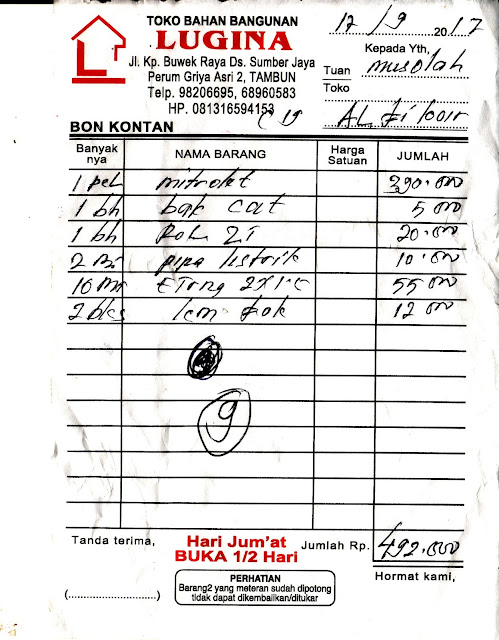 TOKO BAHAN BANGUNAN
LUGINA
Jl. Kp. Buwek Raya Ds. Sumber Jaya
Perum Griya Asri 2, TAMBUN
Telp. 98206695, 68960583
HP. 081316594153
12/9 2017
Kepada Yth,
Tuan musolah
Toko
AL
C 19
BON KONTAN
Banyak nya NAMA BARANG Harga Satuan JUMLAH
1 pel 390.000
1 bh bak cat 5 000
1 bh Rol 20.000
2 pipa listrik 10.000
10 2x1 55 000
2 bks lem 12 000
9
Tanda terima, Hari Jum'at BUKA 1/2 Hari Jumlah Rp. 492.000
Hormat kami,
(....................)
PERHATIAN
Barang2 yang meteran sudah dipotong
tidak dapat dikembalikan/ditukar